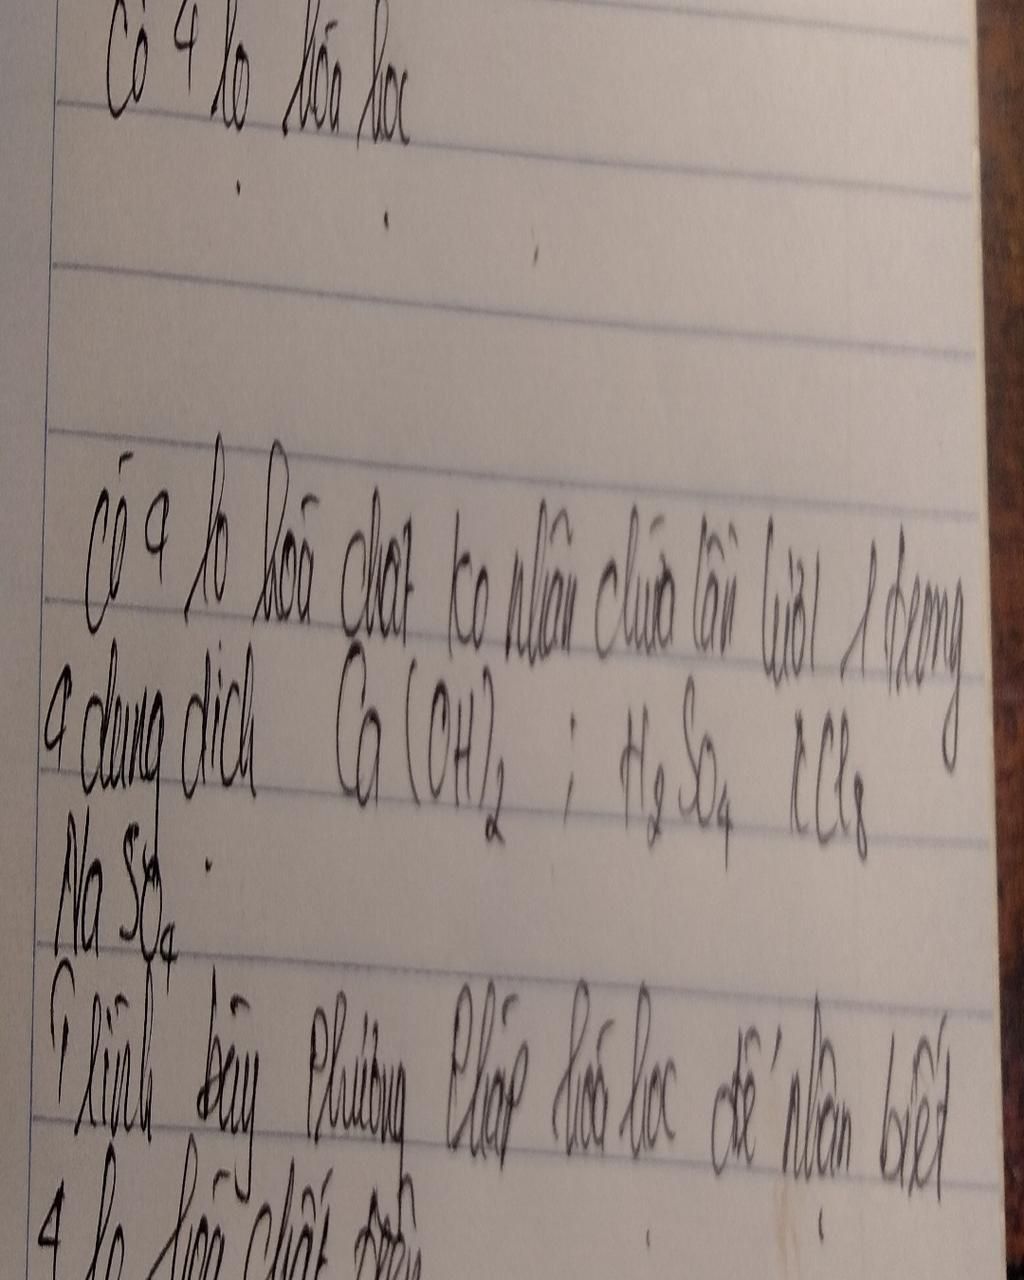 Có 4 lọ hóa học
Có 4 lọ hoá chất ko nhãn chứa lần lượt 1 trong
4 dung dịch Ca(OH)2 ; H2SO4 KCl
NaSO4.
Trình bày Phương Pháp hoá học để nhận biết
4 lọ hoá chất trên